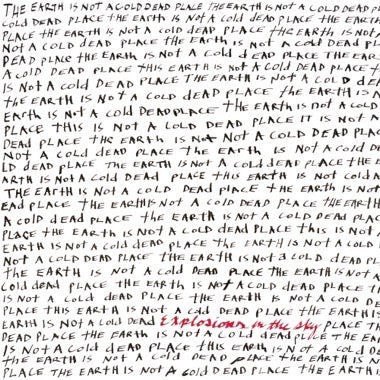 THE EARTH IS NOT A COLD DEAD PLACE THE EARTH IS NOT A COLD DEAD
COLD DEAD PLACE THE EARTH IS NOT A COLD DEAD PLACE THE EARTH
PLACE THE EARTH IS NOT A COLD DEAD PLACE THE EARTH IS NOT
NOT A COLD DEAD PLACE THE EARTH IS NOT A COLD DEAD
DEAD PLACE THE EARTH IS NOT A COLD DEAD PLACE THE EAR
A COLD DEAD PLACE THIS EARTH IS NOT A COLD DEAD PLACE
IS NOT A COLD DEAD PLACE THE EARTH IS NOT A COLD
THE EARTH IS NOT A COLD DEAD PLACE THE EARTH IS A
EARTH IS NOT A COLD DEAD PLACE THE EARTH IS NOT A COLD
PLACE THIS IS NOT A COLD DEAD PLACE IT IS NOT A
DEAD PLACE THE EARTH IS NOT A COLD DEAD PLACE
NOT A COLD DEAD PLACE THE EARTH IS NOT A COLD
LD DEAD PLACE THE EARTH IS NOT A COLD DEAD PLACE THE
ARTH IS NOT A COLD DEAD PLACE THIS EARTH IS NOT COLD
THE EARTH IS NOT A COLD DEAD PLACE THE EARTH IS NOT
EAD PLACE THE EARTH IS NOT A COLD DEAD PLACE THE EARTH
A COLD DEAD PLACE THE EARTH IS NOT A COLD DEAD PLAC
PLACE THE EARTH IS NOT A COLD DEAD PLACE THIS IS NOT
EARTH IS NOT A COLD DEAD PLACE THE EARTH IS NOT A COLD
NOT A COLD DEAD PLACE THE EARTH IS NOT A COLD DEAD
THE EARTH IS NOT A COLD DEAD PLACE THE EARTH IS NOT A
COLD DEAD PLACE THE EARTH IS NOT A COLD DEAD PLACE
IS NOT A COLD DEAD PLACE THE EARTH IS NOT A COLD DE
PLACE THIS EARTH IS NOT A COLD DEAD PLACE THE EARTH IS
EARTH IS NOT A COLD DEAD Explosions in the sky PLACE THE
DEAD PLACE THE EARTH IS NOT A COLD DEAD PLACE THE EA
IS NOT A COLD DEAD PLACE THIS EARTH IS NOT A COLD
THE EARTH IS NOT A COLD DEAD PLACE THE EARTH IS N
PLACE THE EARTH IS NOT A COLD DEAD PLACE THE EARTH IS NOT